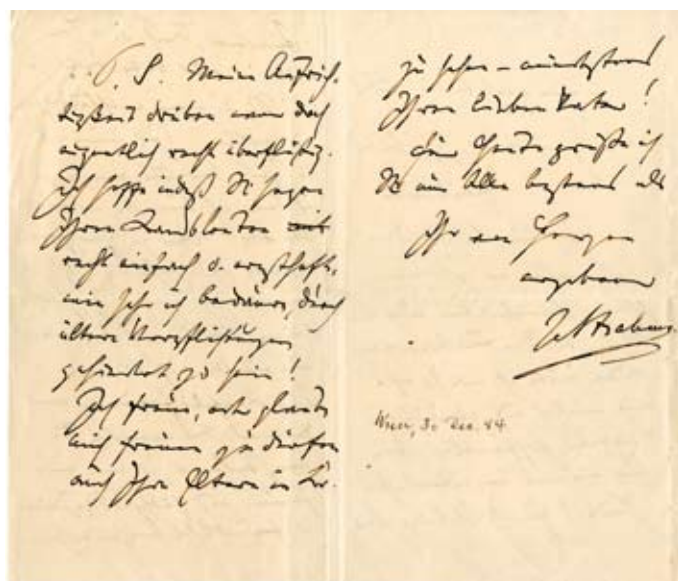 P. S. Meine Aufrich-
tigkeit drüben war doch
eigentlich recht überflüssig.
Ich hoffe indeß Sie sagen
Ihren Landsleuten
recht einfach u. ernsthaft,
wie sehr ich bedaure, durch
ältere Verpflichtungen
gehindert zu sein!
Ich freue, oder glaube
mich freuen zu dürfen
auch Ihre Eltern in Kr.
zu sehen – mindestens
Ihren lieben Vater!
Für heute grüße ich
Sie Alle bestens als
Ihr von Herzen
ergebener
J. Brahms.
Wien, 30 Dez. 84